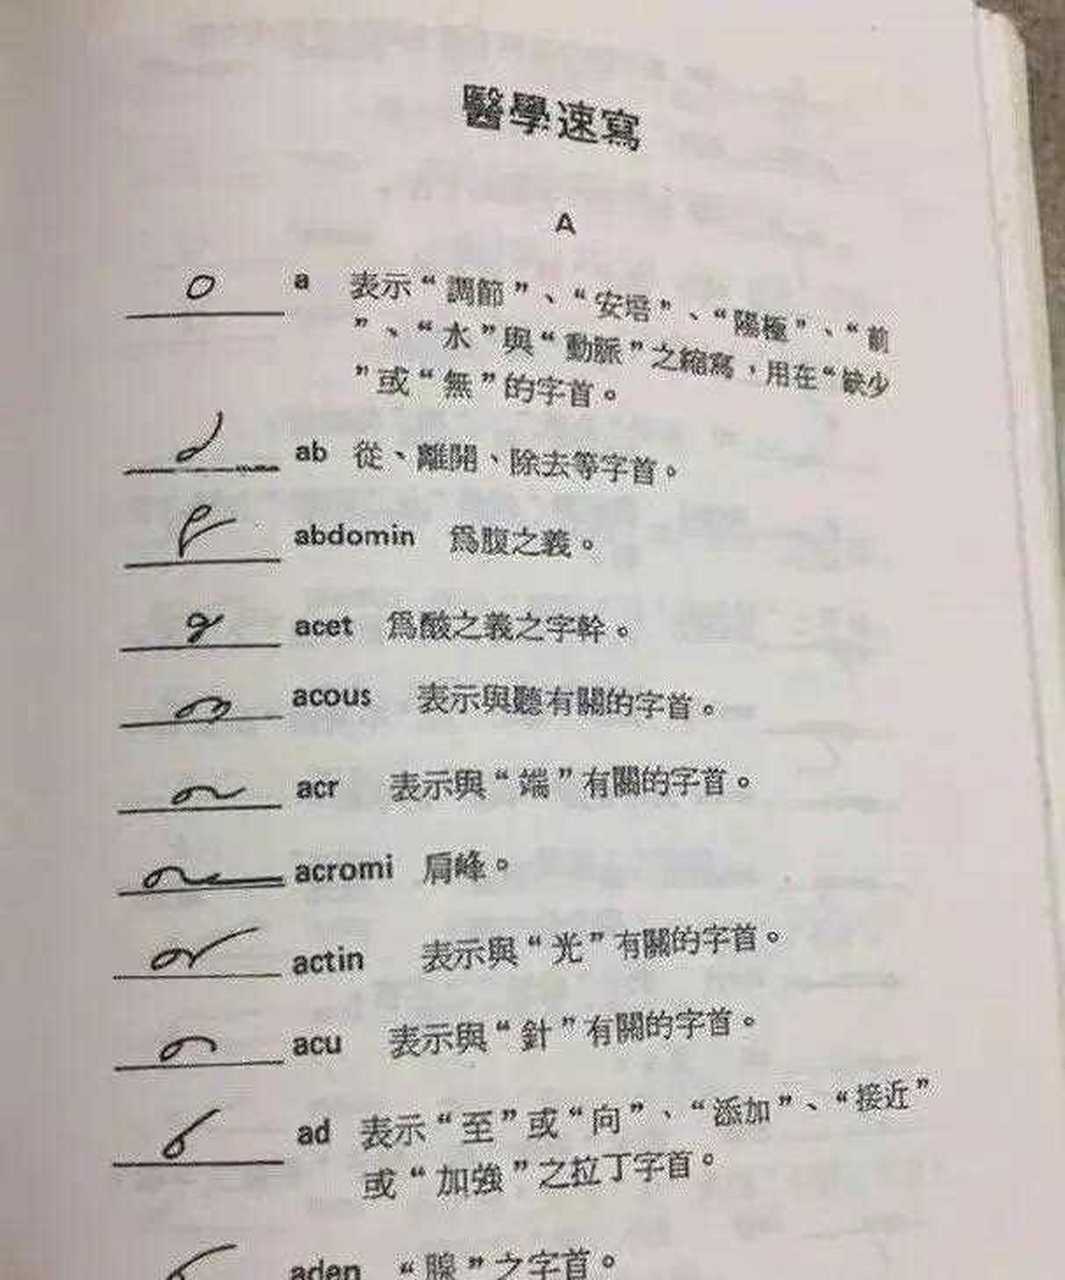 醫學速寫
A
a 表示“調節”、“安培”、“陽極”、“前
”、“水”與“動脈”之縮寫，用在“缺少
”或“無”的字首。
ab 從、離開、除去等字首。
abdomin 爲腹之義。
acet 爲酸之義之字幹。
acous 表示與聽有關的字首。
acr 表示與“端”有關的字首。
acromi 肩峰。
actin 表示與“光”有關的字首。
acu 表示與“針”有關的字首。
ad 表示“至”或“向”、“添加”、“接近”
或“加強”之拉丁字首。
aden “腺”之字首。